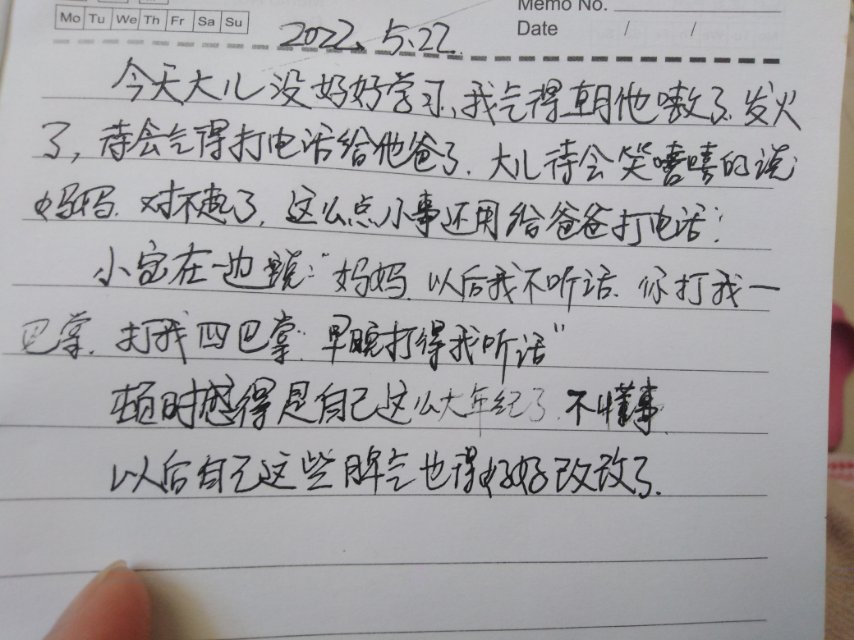 Memo No.
Mo Tu We Th Fr Sa Su
Date / /
2022.5.22.
今天大儿没好好学习,我气得朝他嗷了.发火
了,待会气得打电话给他爸了.大儿待会笑嘻嘻的说
妈妈.对不起了,这么点小事还用给爸爸打电话!
小宝在一边说:"妈妈.以后我不听话.你打我一
巴掌.打我四巴掌.早晚打得我听话"
顿时感得是自己这么大年纪了.不懂事.
以后自己这些脾气也得好好改改了.